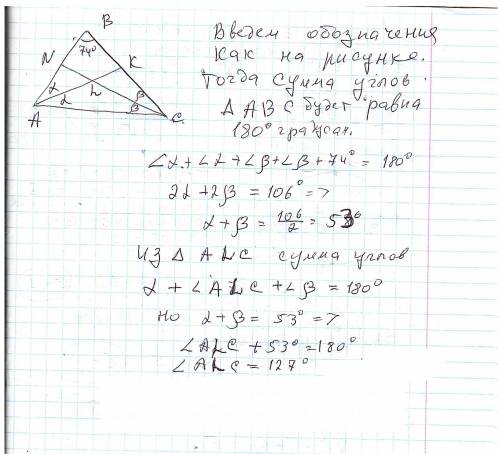 B
74°
N
K
α
α
L
β
β
A
C
Введем обозначения
как на рисунке.
Тогда сумма углов
Δ ABC будет равна
180° граждан.
∠α + ∠α + ∠β + ∠β + 74° = 180°
2α + 2β = 106° =>
α + β = 106/2 = 53°
Из Δ ALC сумма углов
α + ∠ALC + ∠β = 180°
но α + β = 53° =>
∠ALC + 53° = 180°
∠ALC = 127°